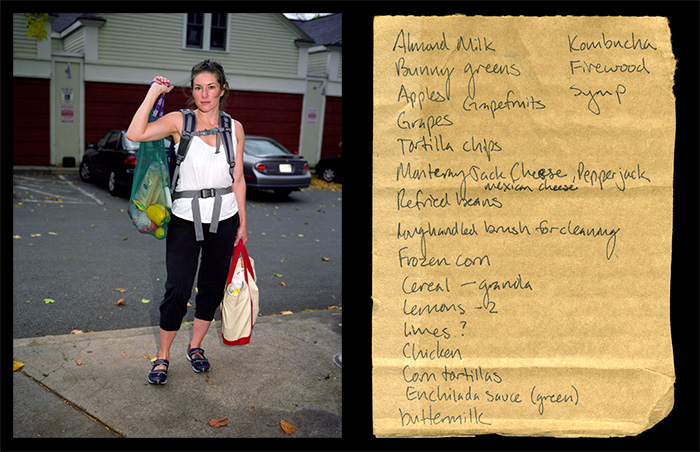 Almond Milk
Bunny greens
Apples Grapefruits
Grapes
Tortilla chips
Monterey Jack Cheese, Pepperjack
mexican cheese
Refried beans
longhandled brush for cleaning
Frozen corn
Cereal - granola
Lemons - 2
limes ?
Chicken
Corn tortillas
Enchilada sauce (green)
buttermilk
Kombucha
Firewood
Syrup